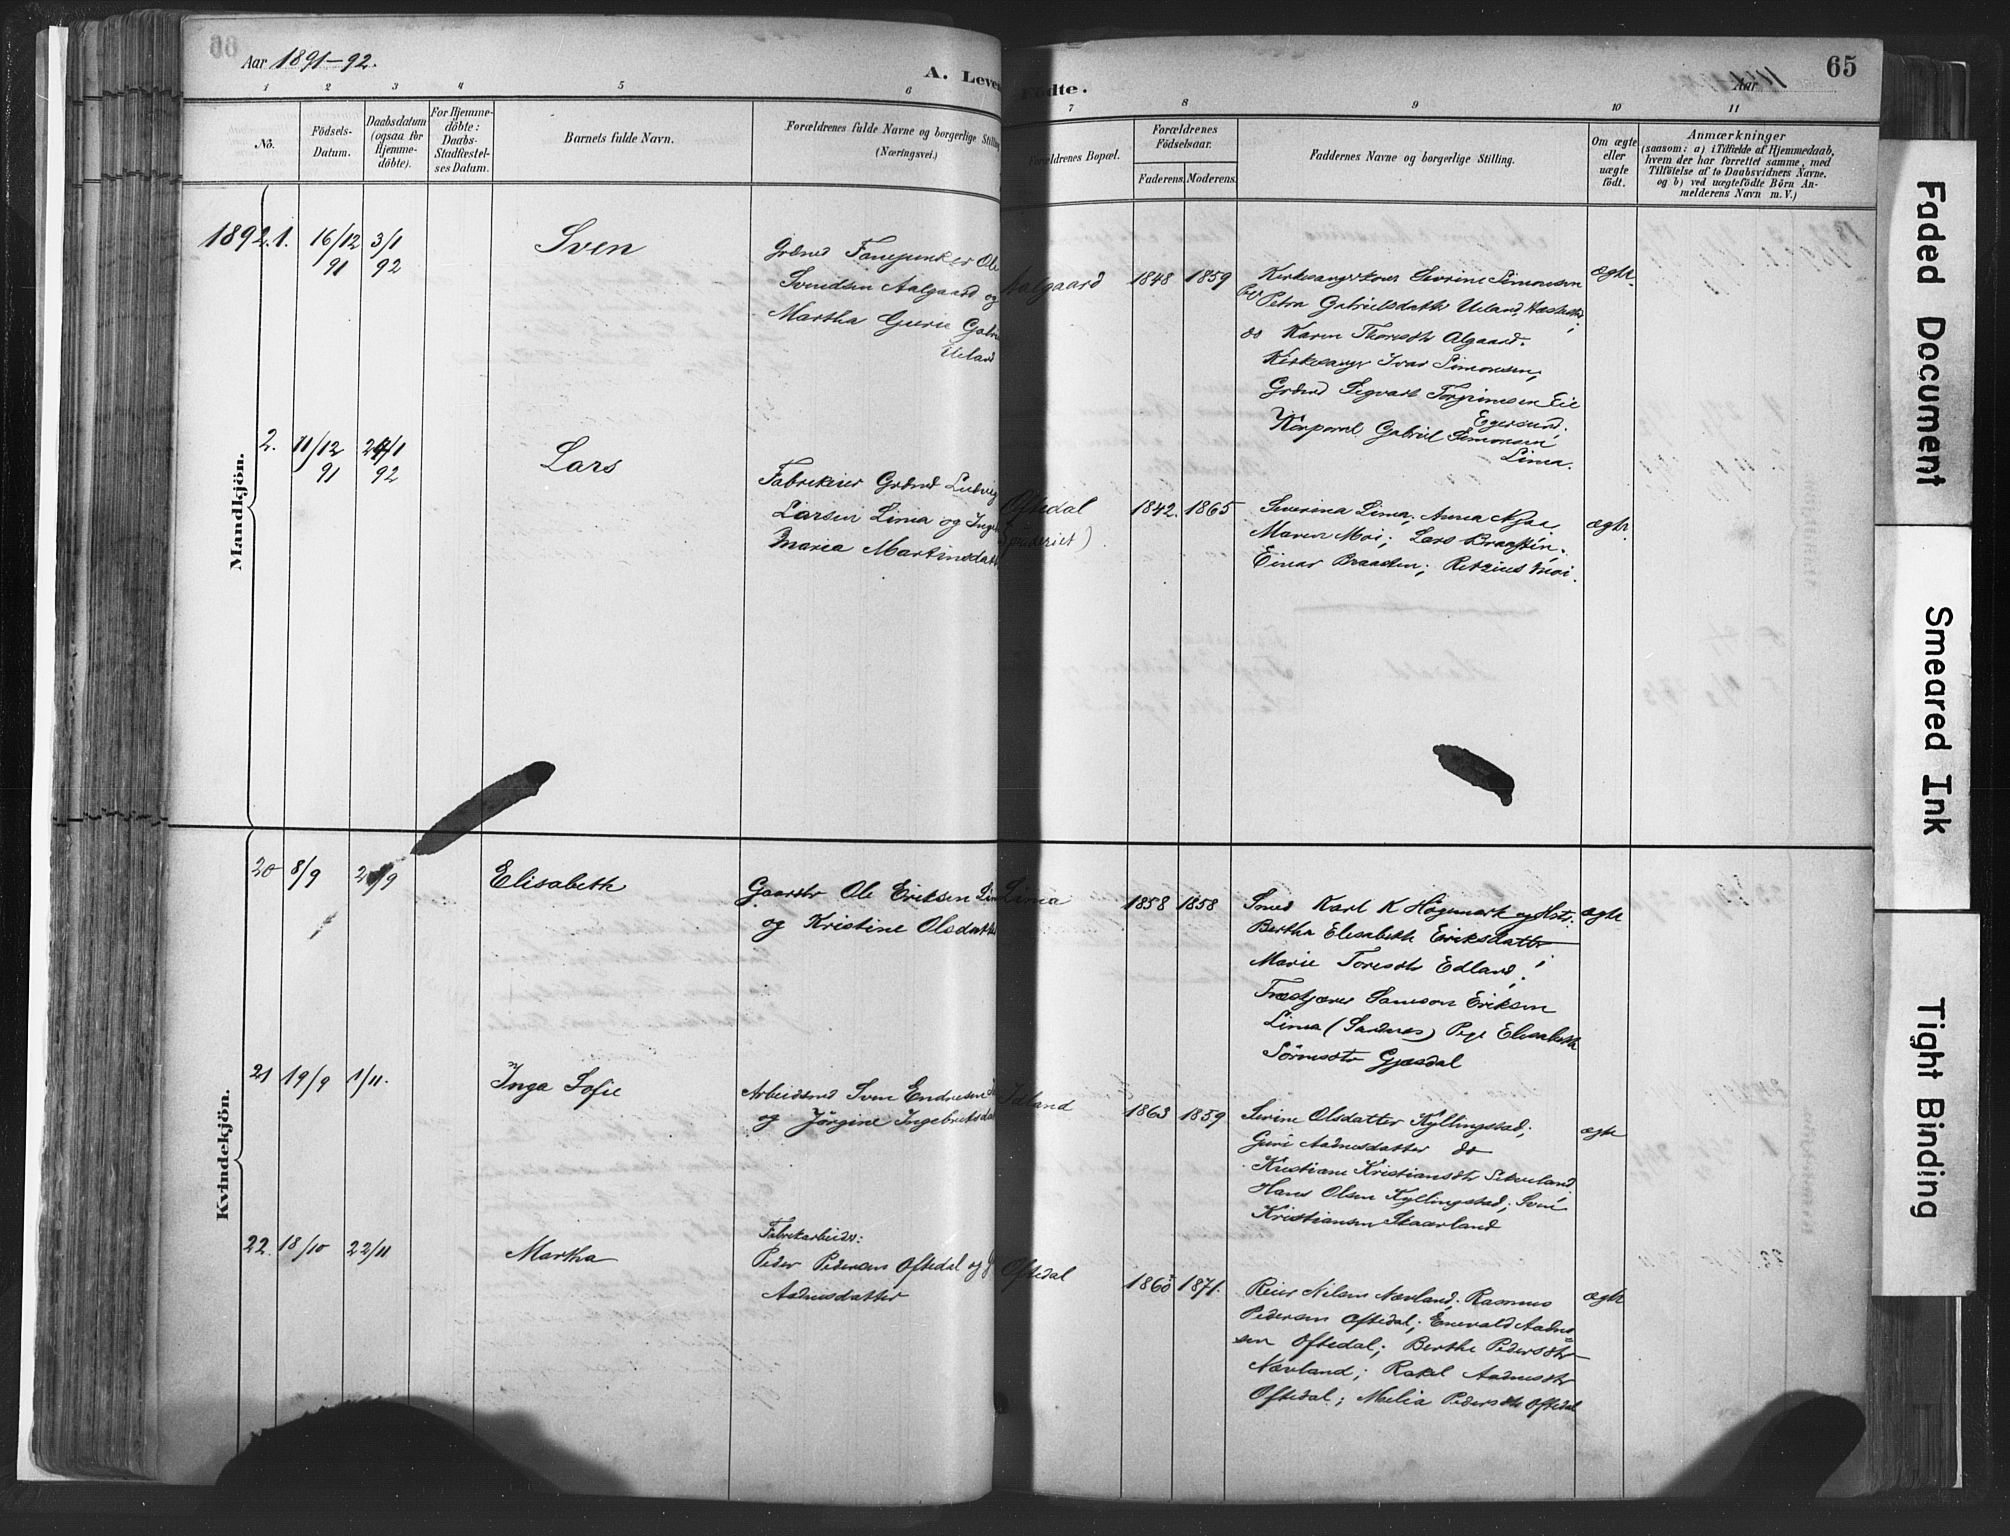 Aar 1891-92.
A. Levende Födte.
65
Aar
1 2 3 4 5 6 7 8 9 10 11
No.
Födsels-
Datum.
Daabsdatum
(ogsaa for
Hjemme-
döbte).
For Hjemme-
döbte:
Daabs-
Stadfæstel-
ses Datum.
Barnets fulde Navn.
Forældrenes fulde Navne og borgerlige Stilling
(Næringsvei.)
Forældrenes Bopæl.
Forældrenes
Födselsaar.
Faderens. Moderens.
Faddernes Navne og borgerlige Stilling.
Om ægte
eller
uægte
födt.
Anmærkninger
(saasom: a) i Tilfælde af Hjemmedaab,
hvem der har forrettet samme, med
Tilföielse af to Daabsvidners Navne.
og b) ved uægtefödte Börn An-
melderens Navn m. V.)
Mandkjön.
1892. 1. 16/12 91 3/1 92
Sven
Grdmd Ole
Svendsen Aalgaard og
Martha Gurie
Ueland
Aalgaard
1848 1859
Kirkesangerkone Severine Simonsen
Pige Petra Gabrielsdatter Ueland
do Karen Thoresdtr Algaard.
Kirkesanger Ivar Simonsen,
Grdmd Segvart Torgrimsen Eie
Egersund.
Korporal Gabriel Simonsen
Lima.
ægte
2. 11/12 91 24/1 92
Lars
Fabrikeier Grdmd Ludvig
Larsen Lima og
Maria Martinsdatter
Oftedal
1842. 1865
Severina Lima, Anna
Maren Moi; Lars Braasten;
Einar Braasten; Retzius Moi.
ægte
Kvindekjön.
20 8/9 /9
Elisabeth
Gaardbr Ole Eriksen Lima
og Kristine Olsdatter
Lima
1858 1858
Smed Karl K Högemark og Hstr.
Bertha Elisabeth Eriksdatter
Marie Toresdtr Edland;
Samson Eriksen
Lima (Sandnes) Pige Elisabeth
Sörensdtr Gjesdal
ægte
21 19/9 1/11.
Inga Sofie
Arbeidsmd Sven Endresen
og Jörgine Ingebretsdatter
1863 1859
Serine Olsdatter Kyllingstad;
Guri Aadnesdatter do
Kristiane Kristiansdtr
Hans Olsen Kyllingstad; Sven
Kristiansen Skaarland
ægte
22. 18/10 22/11
Martha
Fabrikarbeider:
Peder Pedersen Oftedal og
Aadnesdatter
Oftedal
1865 1871.
Reier Nilsen Nævland, Rasmus
Pedersen Oftedal; Enevald Aadne-
sen Oftedal; Berthe Pedersdtr
Nævland; Rakel Aadnesdtr
Oftedal; Malia Pedersdtr Oftedal
ægte
Faded Document
Smeared Ink
Tight Binding